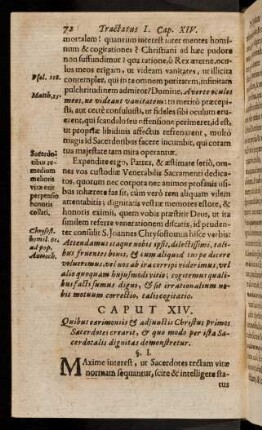 72 Tractatus I. Cap. XIV.
mortalem! quantum interest inter mentes hominum
& cogitationes? Christiani ad hæc pudore
non suffundimur? qua ratione, ô Rex æterne, oculos
meos erigam, ut videam vanitates, ut illicita
contempler, qui in te omnem
pulchritudinem admiror? Domine, Averte oculos
Psal. 118.
meos, ne videant vanitatem: tu meritò præcepisti,
aut certè consuluisti, ut fideles sibi oculum eruerent,
Matth. 5.
qui scandalo seu offensioni perimeret, id est,
ut propriæ libidinis affectus refrenarent, multò
magis id Sacerdotibus facere incumbit, qui coram
tua majestate tam mira operantur.
Sacerdotibus remedium melioris vitæ est perpensio honoris collati.
Expendite ergo, Patres, & æstimate seriò, omnes
vos custodiæ Venerabilis Sacramenti dedicatos,
quorum nec corpora nec animos profanis usibus
inhærere fas sit, cùm verò rem aliquam vilem
intentabitis; dignitatis vestræ memores estote, &
honoris eximii, quem vobis præstitit Deus, ut ita
simulem referre venerationem discatis, id prudenter
consulit S. Joannes Chrysostomus hisce verbis:
Chrysost. homil. 21. ad pop. Antioch.
Attendamus itaque nobis ipsis, dilectissimi, talibus
fruentes bonis, & cum aliquid turpe dicere
voluerimus, vel nos ab ira corripi viderimus, vel
alio quoquam hujusmodi vitio; cogitemus qualibus
facti sumus digni, & sit irrationalium nobis
motuum correctio, talis cogitatio.
CAPUT XIV.
Quibus cærimoniis & adjunctis Christus primos
Sacerdotes crearit, & quo modo per ista Sacerdotalis
dignitas demonstretur.
§. I.
MAxime interest, ut Sacerdotes rectam vitæ
normam sequantur, scire & intelligere status